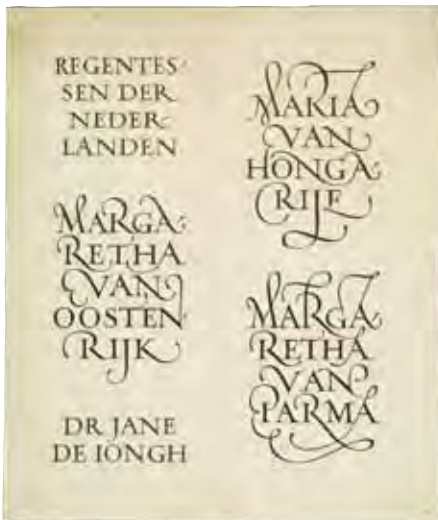 REGENTES-
SEN DER
NEDER-
LANDEN
MARGA-
RETHA
VAN
OOSTEN
RIJK
DR JANE
DE IONGH
MARIA
VAN
HONGA-
RIJE
MARGA-
RETHA
VAN
PARMA